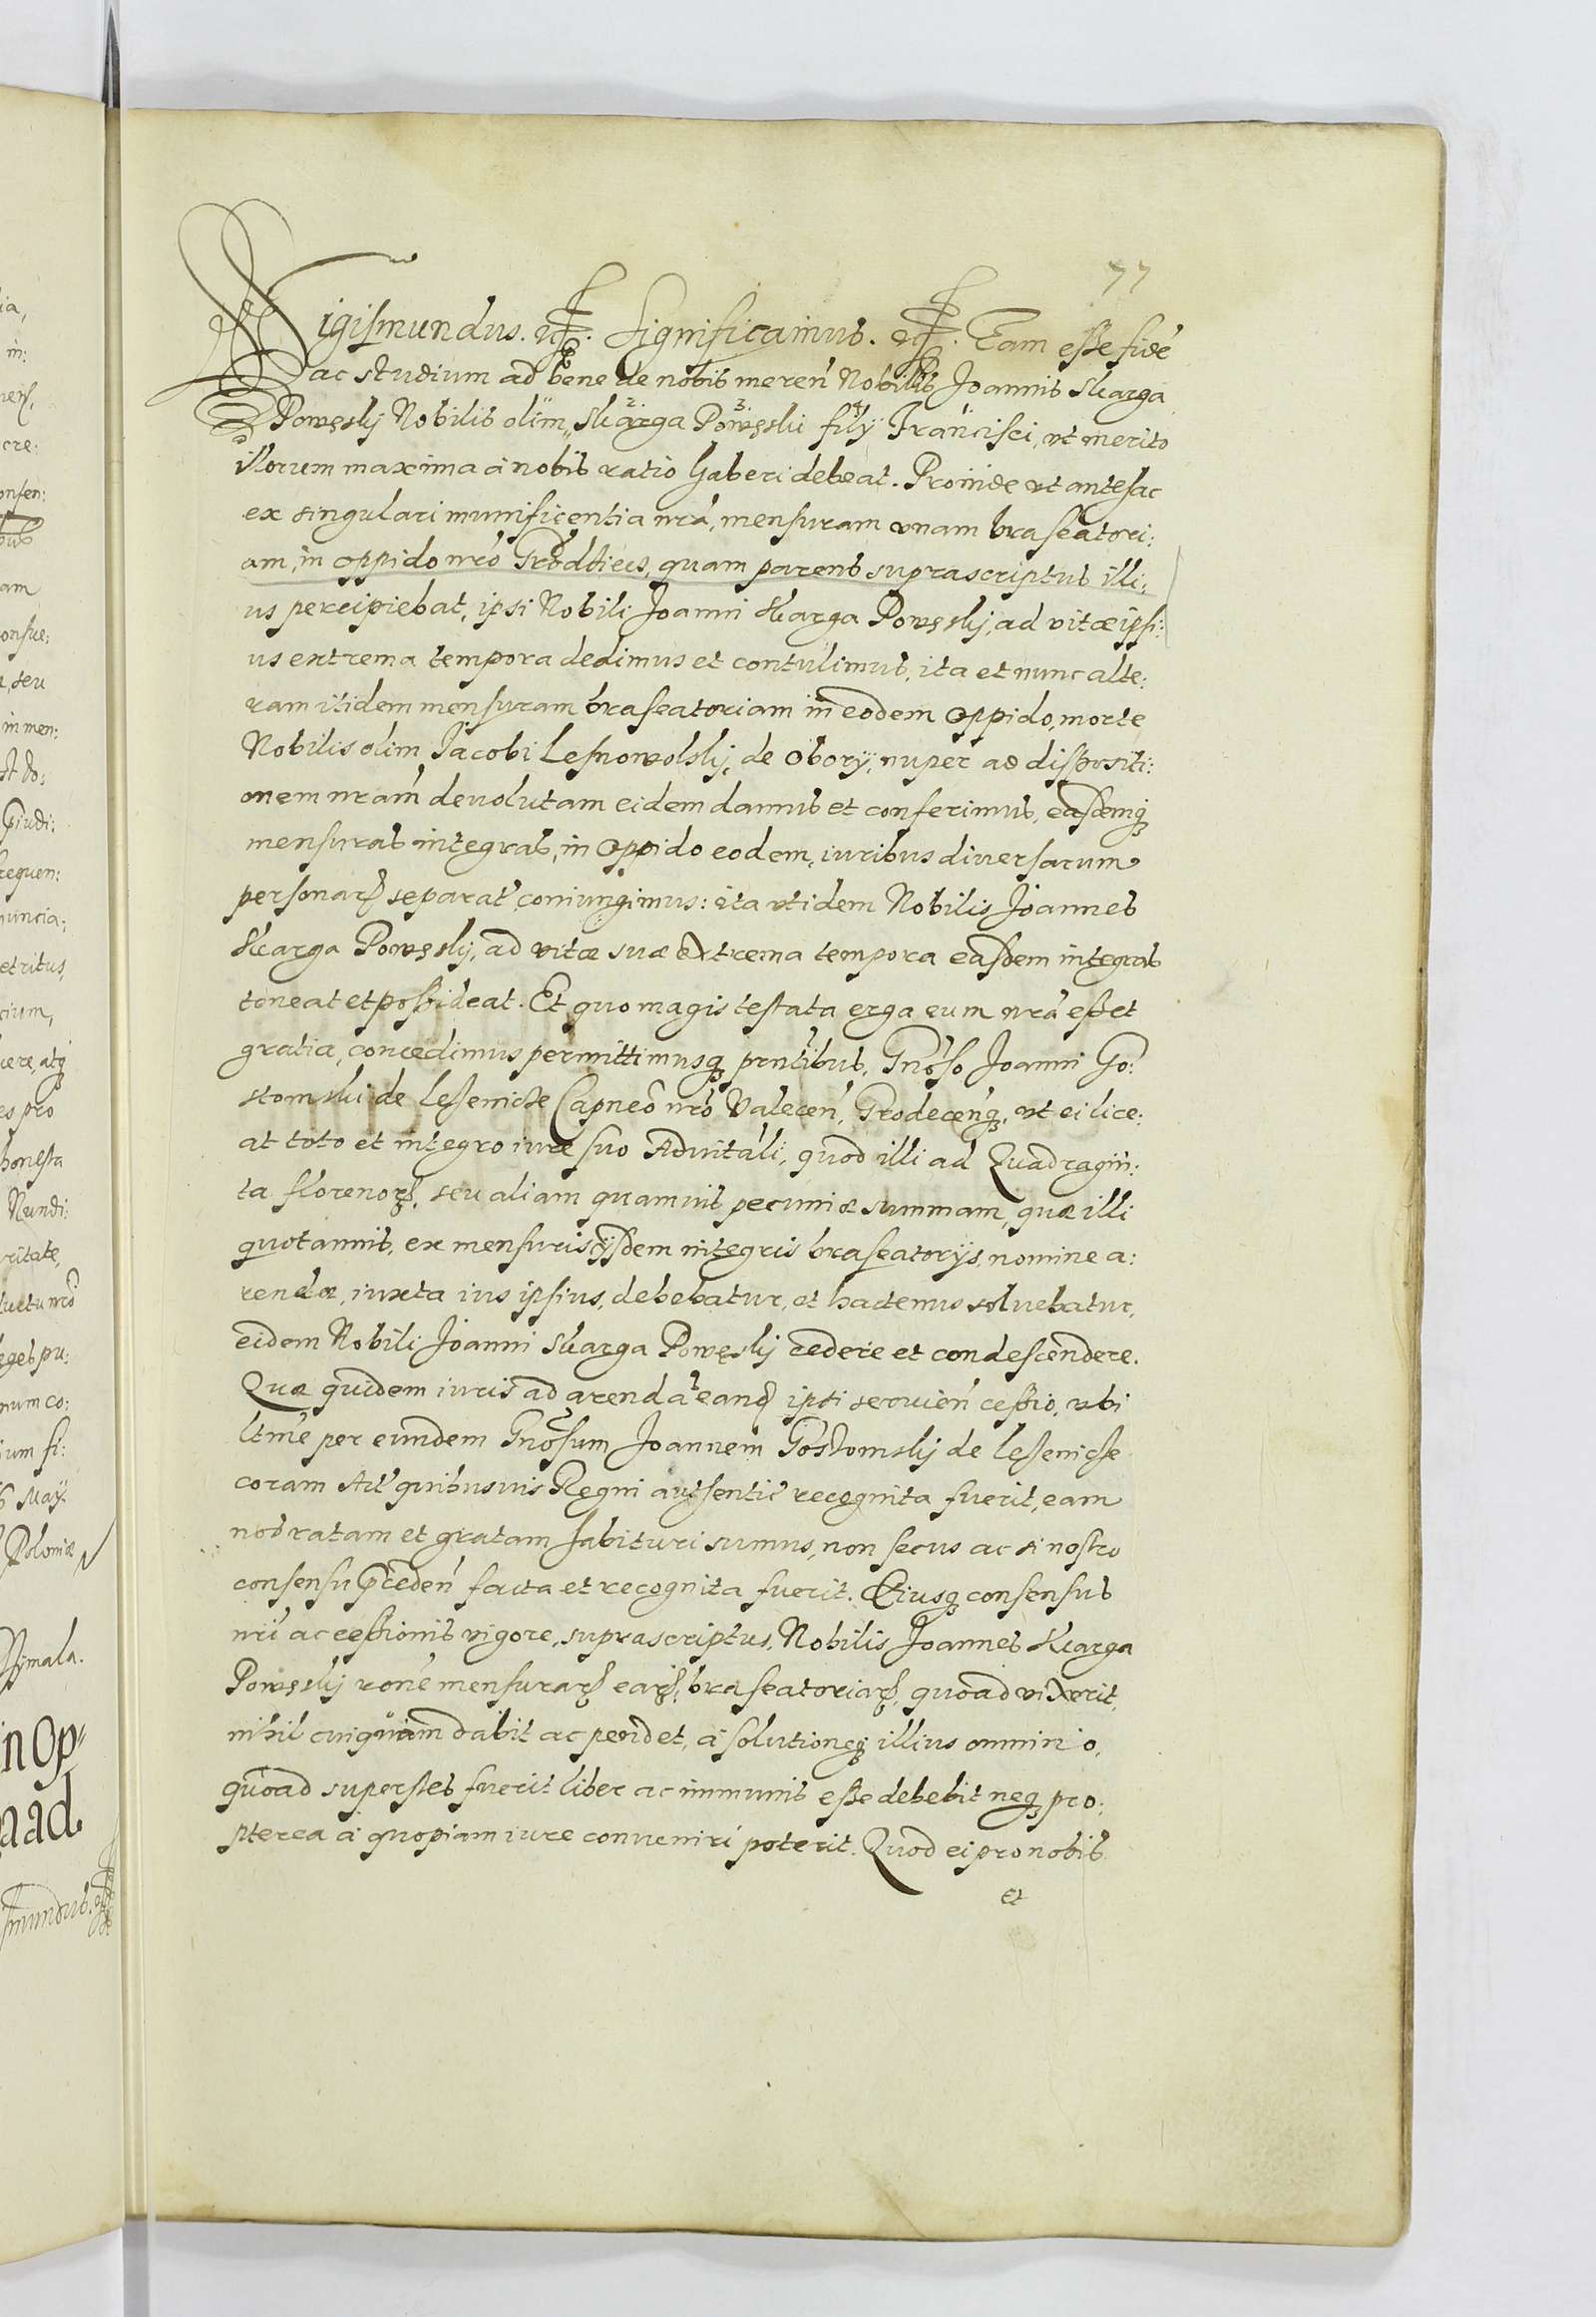 77
Sigismundus. etc. Significamus. etc. Eam esse fidē
ac studium ad bene de nobis meren̄ Nobilis Joannis Skarga
Powęskÿ Nobilis olim Skarga Powęski filÿ Francisci, vt merito
illorum maxima à nobis ratio haberi debeat. Proinde vt antehac
ex singulari munificentia nr̄a, mensuram vnam braseatori:
am, in oppido nr̄o Grodziecz, quam parens suprascriptus illi:
us percipiebat, ipsi Nobili Joanni Skarga Powęskÿ, ad vitæ ipsi:
us extrema tempora dedimus et contulimus, ita et nunc alte:
ram itidem mensuram braseatoriam in eodem oppido, morte
Nobilis olim Jacobi Lesnowolskÿ, de Oborÿ, nuper ad dispositi:
onem nr̄am deuolutam eidem damus et conferimus, easdemq́
mensuras integras, in oppido eodem, iuribus diuersarum
personarȝ separat̄ coniungimus: ita vt idem Nobilis Joannes
Skarga Powęskÿ, ad vitæ suæ extrema tempora easdem integras
teneat et possideat. Et quo magis testata erga eum nr̄a esset
gratia, concedimus permittimusq́ pn̄tibus, Gn̄oso Joanni Go:
stomski de Lezenicze Capneo nr̄o Valecen̄, Grodecen̄q́, vt ei lice:
at toto et integro iure suo Aduitali, quod illi ad Quadragin:
ta florenorȝ, seu aliam quamuis pecuniæ summam, quæ illi
quotannis, ex mensuris ÿsdem integris braseatorÿs, nomine a:
rendæ, iuxta ius ipsius, debebatur, et hactenus soluebatur,
eidem Nobili Joanni Skarga Powęskÿ cedere et condescendere.
Quæ quidem iuris ad arendā eand̄ ipsi seruien̄ cessio, vbi
ltīme per eundem Gn̄osum Joannem Gostomskÿ de Lezenicze
coram Act̄ quibusuis Regni authentic̄ recognita fuerit, eam
nos ratam et gratam habituri sumus, non secus ac si nostro
consensu p̄ceden̄ facta et recognita fuerit. Eiusq́ consensus
nr̄i ac cessionis vigore, suprascriptus, Nobilis Joannes Skarga
Powęskÿ rōne mensurarȝ earȝ braseatoriarȝ, quoad vixerit,
nihil cuiquam dabit ac pendet, à solutioneq́ illius omnino,
quoad superstes fuerit liber ac immunis esse debebit neq́ pro:
pterea à quopiam iure conueniri poterit. Quod ei pro nobis
et